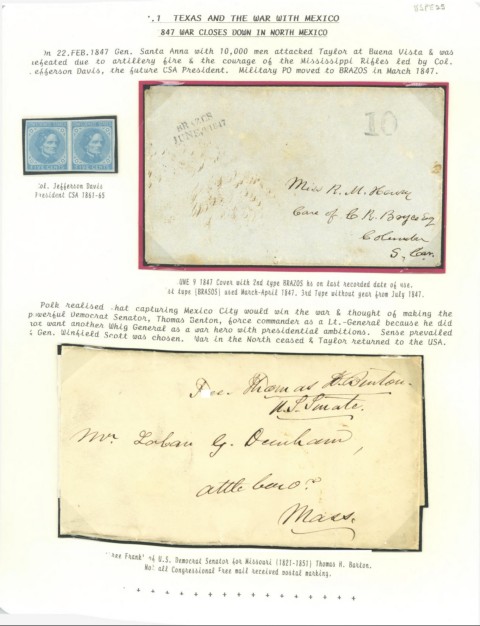 BSPE25
.1 TEXAS AND THE WAR WITH MEXICO
847 WAR CLOSES DOWN IN NORTH MEXICO
On 22.FEB.1847 Gen. Santa Anna with 10,000 men attacked Taylor at Buena Vista & was
defeated due to artillery fire & the courage of the Mississippi Rifles led by Col.
efferson Davis, the future CSA President. Military PO moved to BRAZOS in March 1847.
BRAZOS
JUNE 9 1847
10
FIVE CENTS FIVE CENTS
Col. Jefferson Davis
President CSA 1861-65
Miss R. M.
Care of C. R. Esq
Columbia
S. Car.
UNE 9 1847 Cover with 2nd type BRAZOS hs on last recorded date of use.
st type (BRASOS) used March-April 1847. 3rd Type without year from July 1847.
Polk realised that capturing Mexico City would win the war & thought of making the
powerful Democrat Senator, Thomas Benton, force commander as a Lt.-General because he did
not want another Whig General as a war hero with presidential ambitions. Sense prevailed
& Gen. Winfield Scott was chosen. War in the North ceased & Taylor returned to the USA.
Free Thomas H. Benton.
U.S. Senate.
Mr Loban G. Dunham,
attleboro
Mass.
'Free Frank' of U.S. Democrat Senator for Missouri (1821-1851) Thomas H. Barton.
Not all Congressional Free mail received postal marking.